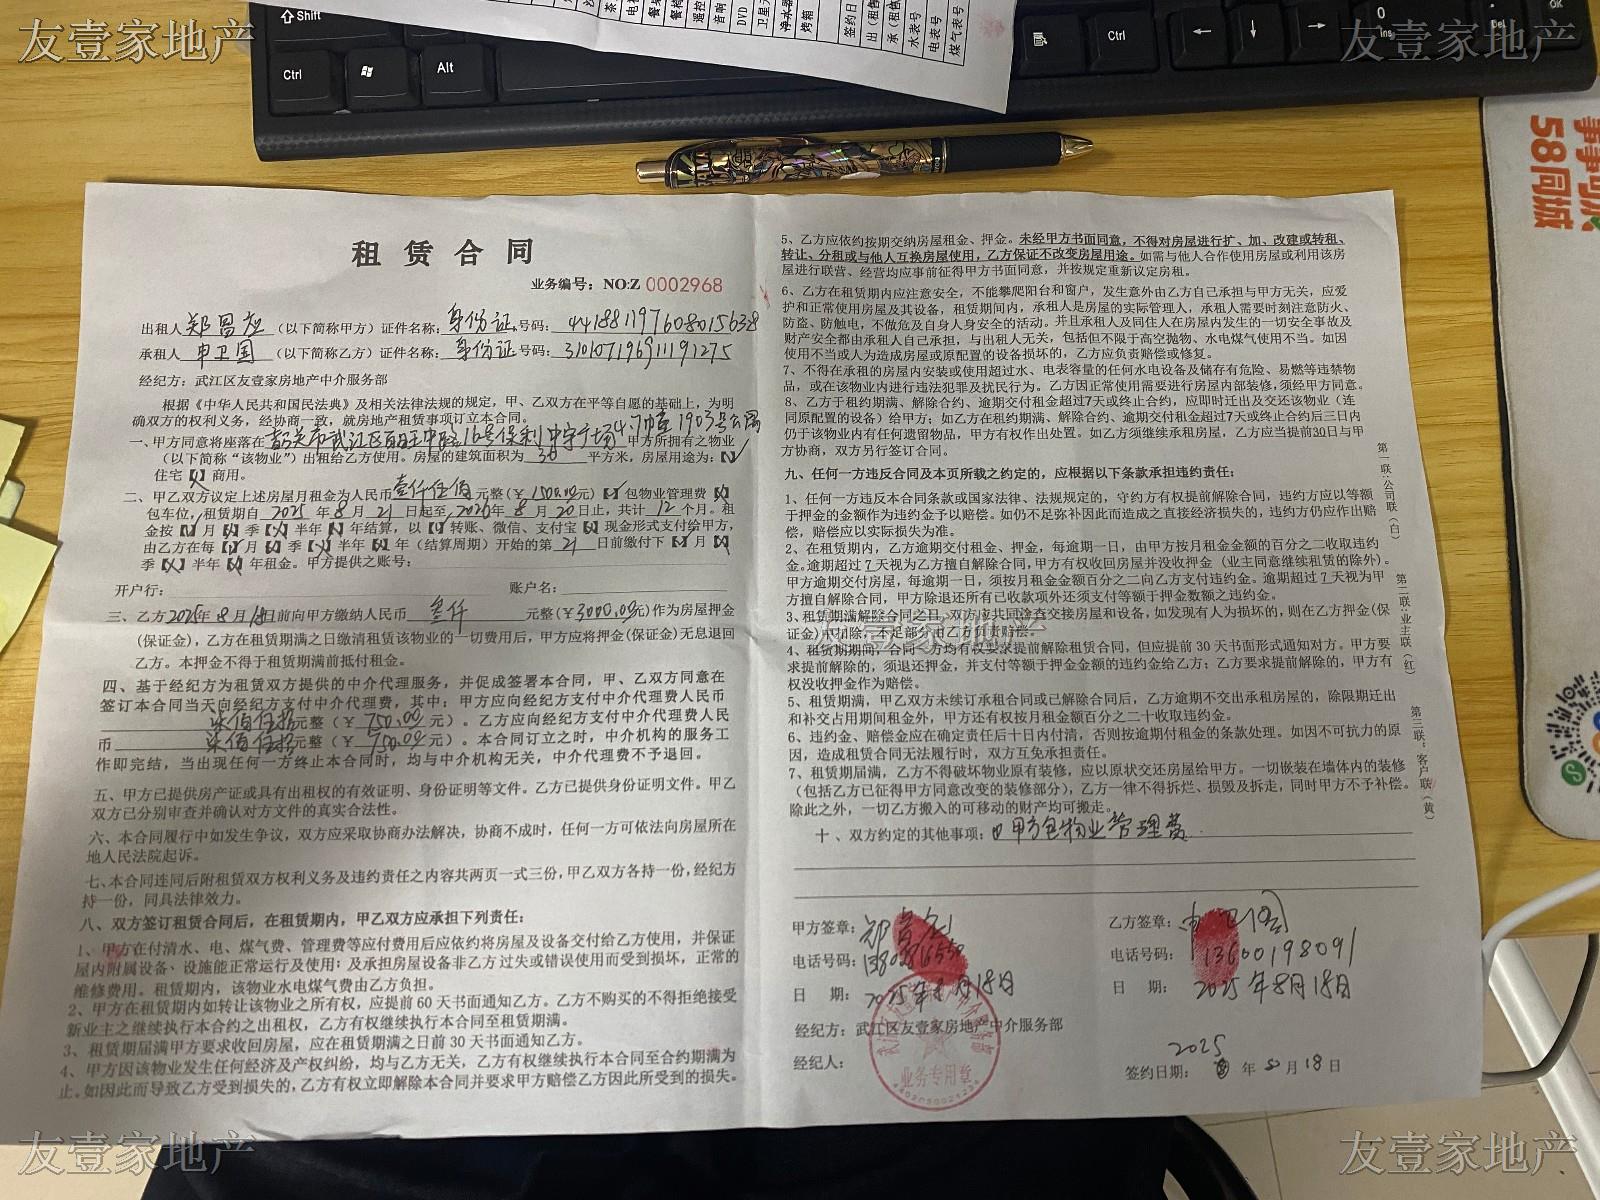 友壹家地产
友壹家地产
Shift
Ctrl
Alt
Ctrl
0
Ins
Del
DVD
烤箱
水表号
电表号
煤气表号
58同城
租赁合同
业务编号：NO:Z 0002968
出租人 郑昌 （以下简称甲方）证件名称：身份证 号码：
承租人 申卫国 （以下简称乙方）证件名称：身份证 号码：
经纪方：武江区友壹家房地产中介服务部
根据《中华人民共和国民法典》及相关法律法规的规定，甲、乙双方在平等自愿的基础上，为明
确双方的权利义务，经协商一致，就房地产租赁事项订立本合同。
一、甲方同意将座落在 韶关市武江区 16号保利中宇广场 1903号公寓 甲方所拥有之物业
（以下简称“该物业”）出租给乙方使用。房屋的建筑面积为 平方米，房屋用途为：【√】
住宅【X】商用。
二、甲乙双方议定上述房屋月租金为人民币 壹仟伍佰 元整（￥1500.00元）【√】包物业管理费【X】
包车位，租赁期自 2025 年 8 月 21 日起至 2026 年 8 月 20 日止，共计 12 个月。租
金按【√】月【X】季【X】半年【X】年结算，以【√】转账、微信、支付宝【X】现金形式支付给甲方，
由乙方在每【√】月【X】季【X】半年【X】年（结算周期）开始的第 21 日前缴付下【√】月【X】
季【X】半年【X】年租金。甲方提供之账号：
开户行： 账户名：
三、乙方 2025年 8月 18日前向甲方缴纳人民币 叁仟 元整（￥3000.00）作为房屋押金
（保证金），乙方在租赁期满之日缴清租赁该物业的一切费用后，甲方应将押金(保证金)无息退回
乙方。本押金不得于租赁期满前抵付租金。
四、基于经纪方为租赁双方提供的中介代理服务，并促成签署本合同，甲、乙双方同意在
签订本合同当天向经纪方支付中介代理费，其中：甲方应向经纪方支付中介代理费人民币
柒佰伍拾 元整（￥750.00 元）。乙方应向经纪方支付中介代理费人民
币 柒佰伍拾 元整（￥750.00 元）。本合同订立之时，中介机构的服务工
作即完结，当出现任何一方终止本合同时，均与中介机构无关，中介代理费不予退回。
五、甲方已提供房产证或具有出租权的有效证明、身份证明等文件。乙方已提供身份证明文件。甲乙
双方已分别审查并确认对方文件的真实合法性。
六、本合同履行中如发生争议，双方应采取协商办法解决，协商不成时，任何一方可依法向房屋所在
地人民法院起诉。
七、本合同连同后附租赁双方权利义务及违约责任之内容共两页一式三份，甲乙双方各持一份，经纪方
持一份，同具法律效力。
八、双方签订租赁合同后，在租赁期内，甲乙双方应承担下列责任：
1、甲方在付清水、电、煤气费、管理费等应付费用后应依约将房屋及设备交付给乙方使用，并保证
屋内附属设备、设施能正常运行及使用；及承担房屋设备非乙方过失或错误使用而受到损坏，正常的
维修费用。租赁期内，该物业水电煤气费由乙方负担。
2、甲方在租赁期内如转让该物业之所有权，应提前60天书面通知乙方。乙方不购买的不得拒绝接受
新业主之继续执行本合约之出租权，乙方有权继续执行本合同至租赁期满。
3、租赁期届满甲方要求收回房屋，应在租赁期满之日前30天书面通知乙方。
4、甲方因该物业发生任何经济及产权纠纷，均与乙方无关，乙方有权继续执行本合同至合约期满为
止。如因此而导致乙方受到损失的，乙方有权立即解除本合同并要求甲方赔偿乙方因此所受到的损失。
5、乙方应依约按期交纳房屋租金、押金。未经甲方书面同意，不得对房屋进行扩、加、改建或转租、
转让、分租或与他人互换房屋使用，乙方保证不改变房屋用途。如需与他人合作使用房屋或利用该房
屋进行联营、经营均应事前征得甲方书面同意，并按规定重新议定房租。
6、乙方在租赁期内应注意安全，不能攀爬阳台和窗户，发生意外由乙方自己承担与甲方无关，应爱
护和正常使用房屋及其设备，租赁期间内，承租人是房屋的实际管理人，承租人需要时刻注意防火、
防盗、防触电，不做危及自身人身安全的活动。并且承租人及同住人在房屋内发生的一切安全事故及
财产安全都由承租人自己承担，与出租人无关，包括但不限于高空抛物、水电煤气使用不当。如因
使用不当或人为造成房屋或原配置的设备损坏的，乙方应负责赔偿或修复。
7、不得在承租的房屋内安装或使用超过水、电表容量的任何水电设备及储存有危险、易燃等违禁物
品，或在该物业内进行违法犯罪及扰民行为。乙方因正常使用需要进行房屋内部装修，须经甲方同意。
8、乙方于租约期满、解除合约、逾期交付租金超过7天或终止合约，应即时迁出及交还该物业（连
同原配置的设备）给甲方；如乙方在租约期满、解除合约、逾期交付租金超过7天或终止合约后三日内
仍于该物业内有任何遗留物品，甲方有权作出处置。如乙方须继续承租房屋，乙方应当提前30日与甲
方协商，双方另行签订合同。
九、任何一方违反合同及本页所载之约定的，应根据以下条款承担违约责任：
1、任何一方违反本合同条款或国家法律、法规规定的，守约方有权提前解除合同，违约方应以等额
于押金的金额作为违约金予以赔偿。如仍不足弥补因此而造成之直接经济损失的，违约方仍应作出赔
偿，赔偿应以实际损失为准。
2、在租赁期内，乙方逾期交付租金、押金，每逾期一日，由甲方按月租金金额的百分之二收取违约
金。逾期超过7天视为乙方擅自解除合同，甲方有权收回房屋并没收押金（业主同意继续租赁的除外）。
甲方逾期交付房屋，每逾期一日，须按月租金金额百分之二向乙方支付违约金。逾期超过7天视为甲
方擅自解除合同，甲方除退还所有已收款项外还须支付等额于押金数额之违约金。
3、租赁期满解除合同之日，双方应共同检查交接房屋和设备，如发现有人为损坏的，则在乙方押金(保
证金)中扣除，不足部分由乙方负责赔偿。
4、租赁期期间，合同双方均有权要求提前解除租赁合同，但应提前30天书面形式通知对方。甲方要
求提前解除的，须退还押金，并支付等额于押金金额的违约金给乙方；乙方要求提前解除的，甲方有
权没收押金作为赔偿。
5、租赁期满，甲乙双方未续订承租合同或已解除合同后，乙方逾期不交出承租房屋的，除限期迁出
和补交占用期间租金外，甲方还有权按月租金额百分之二十收取违约金。
6、违约金、赔偿金应在确定责任后十日内付清，否则按逾期付租金的条款处理。如因不可抗力的原
因，造成租赁合同无法履行时，双方互免承担责任。
7、租赁期届满，乙方不得破坏物业原有装修，应以原状交还房屋给甲方。一切嵌装在墙体内的装修
（包括乙方已征得甲方同意改变的装修部分），乙方一律不得拆烂、损毁及拆走，同时甲方不予补偿。
除此之外，一切乙方搬入的可移动的财产均可搬走。
十、双方约定的其他事项： 甲方包物业管理费.
第一联：公司联（白）
第二联：业主联（红）
第三联：客户联（黄）
友壹家地产
甲方签章：
电话号码：
日 期： 2025年8月18日
乙方签章：
电话号码：13600198091
日 期： 2025年8月18日
经纪方：武江区友壹家房地产中介服务部
经纪人：
业务专用章
2025
签约日期： 年 8 月 18 日
友壹家地产
友壹家地产